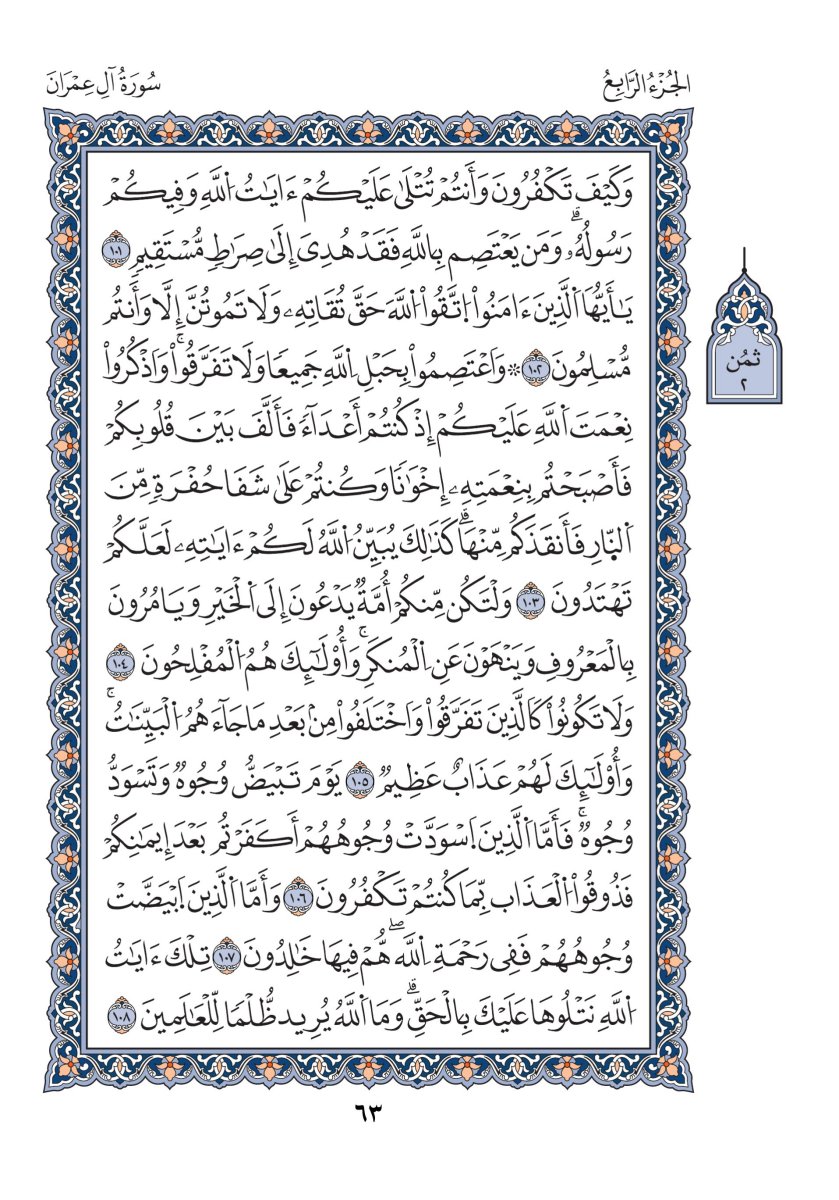 الجُزْءُ الرَّابِعُ
سُورَةُ آلِ عِمْرَانَ
وَكَيْفَ تَكْفُرُونَ وَأَنتُمْ تُتْلَىٰ عَلَيْكُمْ ءَايَٰتُ اُ۬للَّهِ وَفِيكُمْ
رَسُولُهُۥۗ وَمَن يَعْتَصِم بِاللَّهِ فَقَدْ هُدِىَ إِلَىٰ صِرَٰطٖ مُّسْتَقِيمٖ ١٠١
يَٰٓأَيُّهَا اَ۬لَّذِينَ ءَامَنُواْ اُ۪تَّقُواْ اُ۬للَّهَ حَقَّ تُقَاتِهِۦ وَلَا تَمُوتُنَّ إِلَّا وَأَنتُم
مُّسْلِمُونَ ١٠٢ ۞ وَاعْتَصِمُواْ بِحَبْلِ اِ۬للَّهِ جَمِيعٗا وَلَا تَفَرَّقُواْۚ وَاذْكُرُواْ
نِعْمَتَ اَ۬للَّهِ عَلَيْكُمْ إِذْ كُنتُمْ أَعْدَآءٗ فَأَلَّفَ بَيْنَ قُلُوبِكُمْ
فَأَصْبَحْتُم بِنِعْمَتِهِۦٓ إِخْوَٰنٗا وَكُنتُمْ عَلَىٰ شَفَا حُفْرَةٖ مِّنَ
اَ۬لنّ۪ارِ فَأَنقَذَكُم مِّنْهَاۗ كَذَٰلِكَ يُبَيِّنُ اُ۬للَّهُ لَكُمْ ءَايَٰتِهِۦ لَعَلَّكُمْ
تَهْتَدُونَ ١٠٣ وَلْتَكُن مِّنكُمْ أُمَّةٞ يَدْعُونَ إِلَى اَ۬لْخَيْرِ وَيَامُرُونَ
بِالْمَعْرُوفِ وَيَنْهَوْنَ عَنِ اِ۬لْمُنكَرِۚ وَأُوْلَٰٓئِكَ هُمُ اُ۬لْمُفْلِحُونَ ١٠٤
وَلَا تَكُونُواْ كَالَّذِينَ تَفَرَّقُواْ وَاخْتَلَفُواْ مِنۢ بَعْدِ مَا جَآءَهُمُ اُ۬لْبَيِّنَٰتُۚ
وَأُوْلَٰٓئِكَ لَهُمْ عَذَابٌ عَظِيمٞ ١٠٥ يَوْمَ تَبْيَضُّ وُجُوهٞ وَتَسْوَدُّ
وُجُوهٞۚ فَأَمَّا اَ۬لَّذِينَ اَ۪سْوَدَّتْ وُجُوهُهُمْ أَكَفَرْتُم بَعْدَ إِيمَٰنِكُمْ
فَذُوقُواْ اُ۬لْعَذَاب بِّمَا كُنتُمْ تَكْفُرُونَ ١٠٦ وَأَمَّا اَ۬لَّذِينَ اَ۪بْيَضَّتْ
وُجُوهُهُمْ فَفِى رَحْمَةِ اِ۬للَّهۖ هُّمْ فِيهَا خَٰلِدُونَ ١٠٧ تِلْكَ ءَايَٰتُ
اُ۬للَّهِ نَتْلُوهَا عَلَيْكَ بِالْحَقِّۗ وَمَا اَ۬للَّهُ يُرِيد ظُّلْمٗا لِّلْعَٰلَمِينَ ١٠٨
ثمُن
٢
٦٣